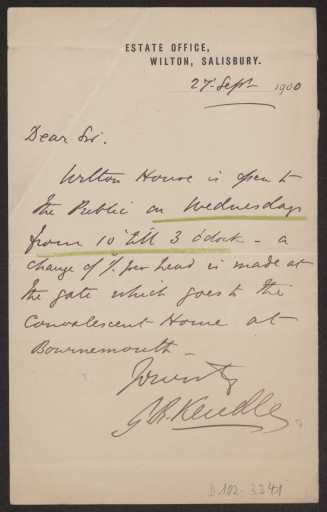 ESTATE OFFICE,
WILTON, SALISBURY.
27 Sept 1900
Dear Sir.
Wilton House is open to
the Public on Wednesdays
from 10 'till 3 o'clock - a
charge of 1/ per head is made at
the gate which goes to the
Convalescent Home at
Bournemouth -
Yours try
Kendle
D 102-3341